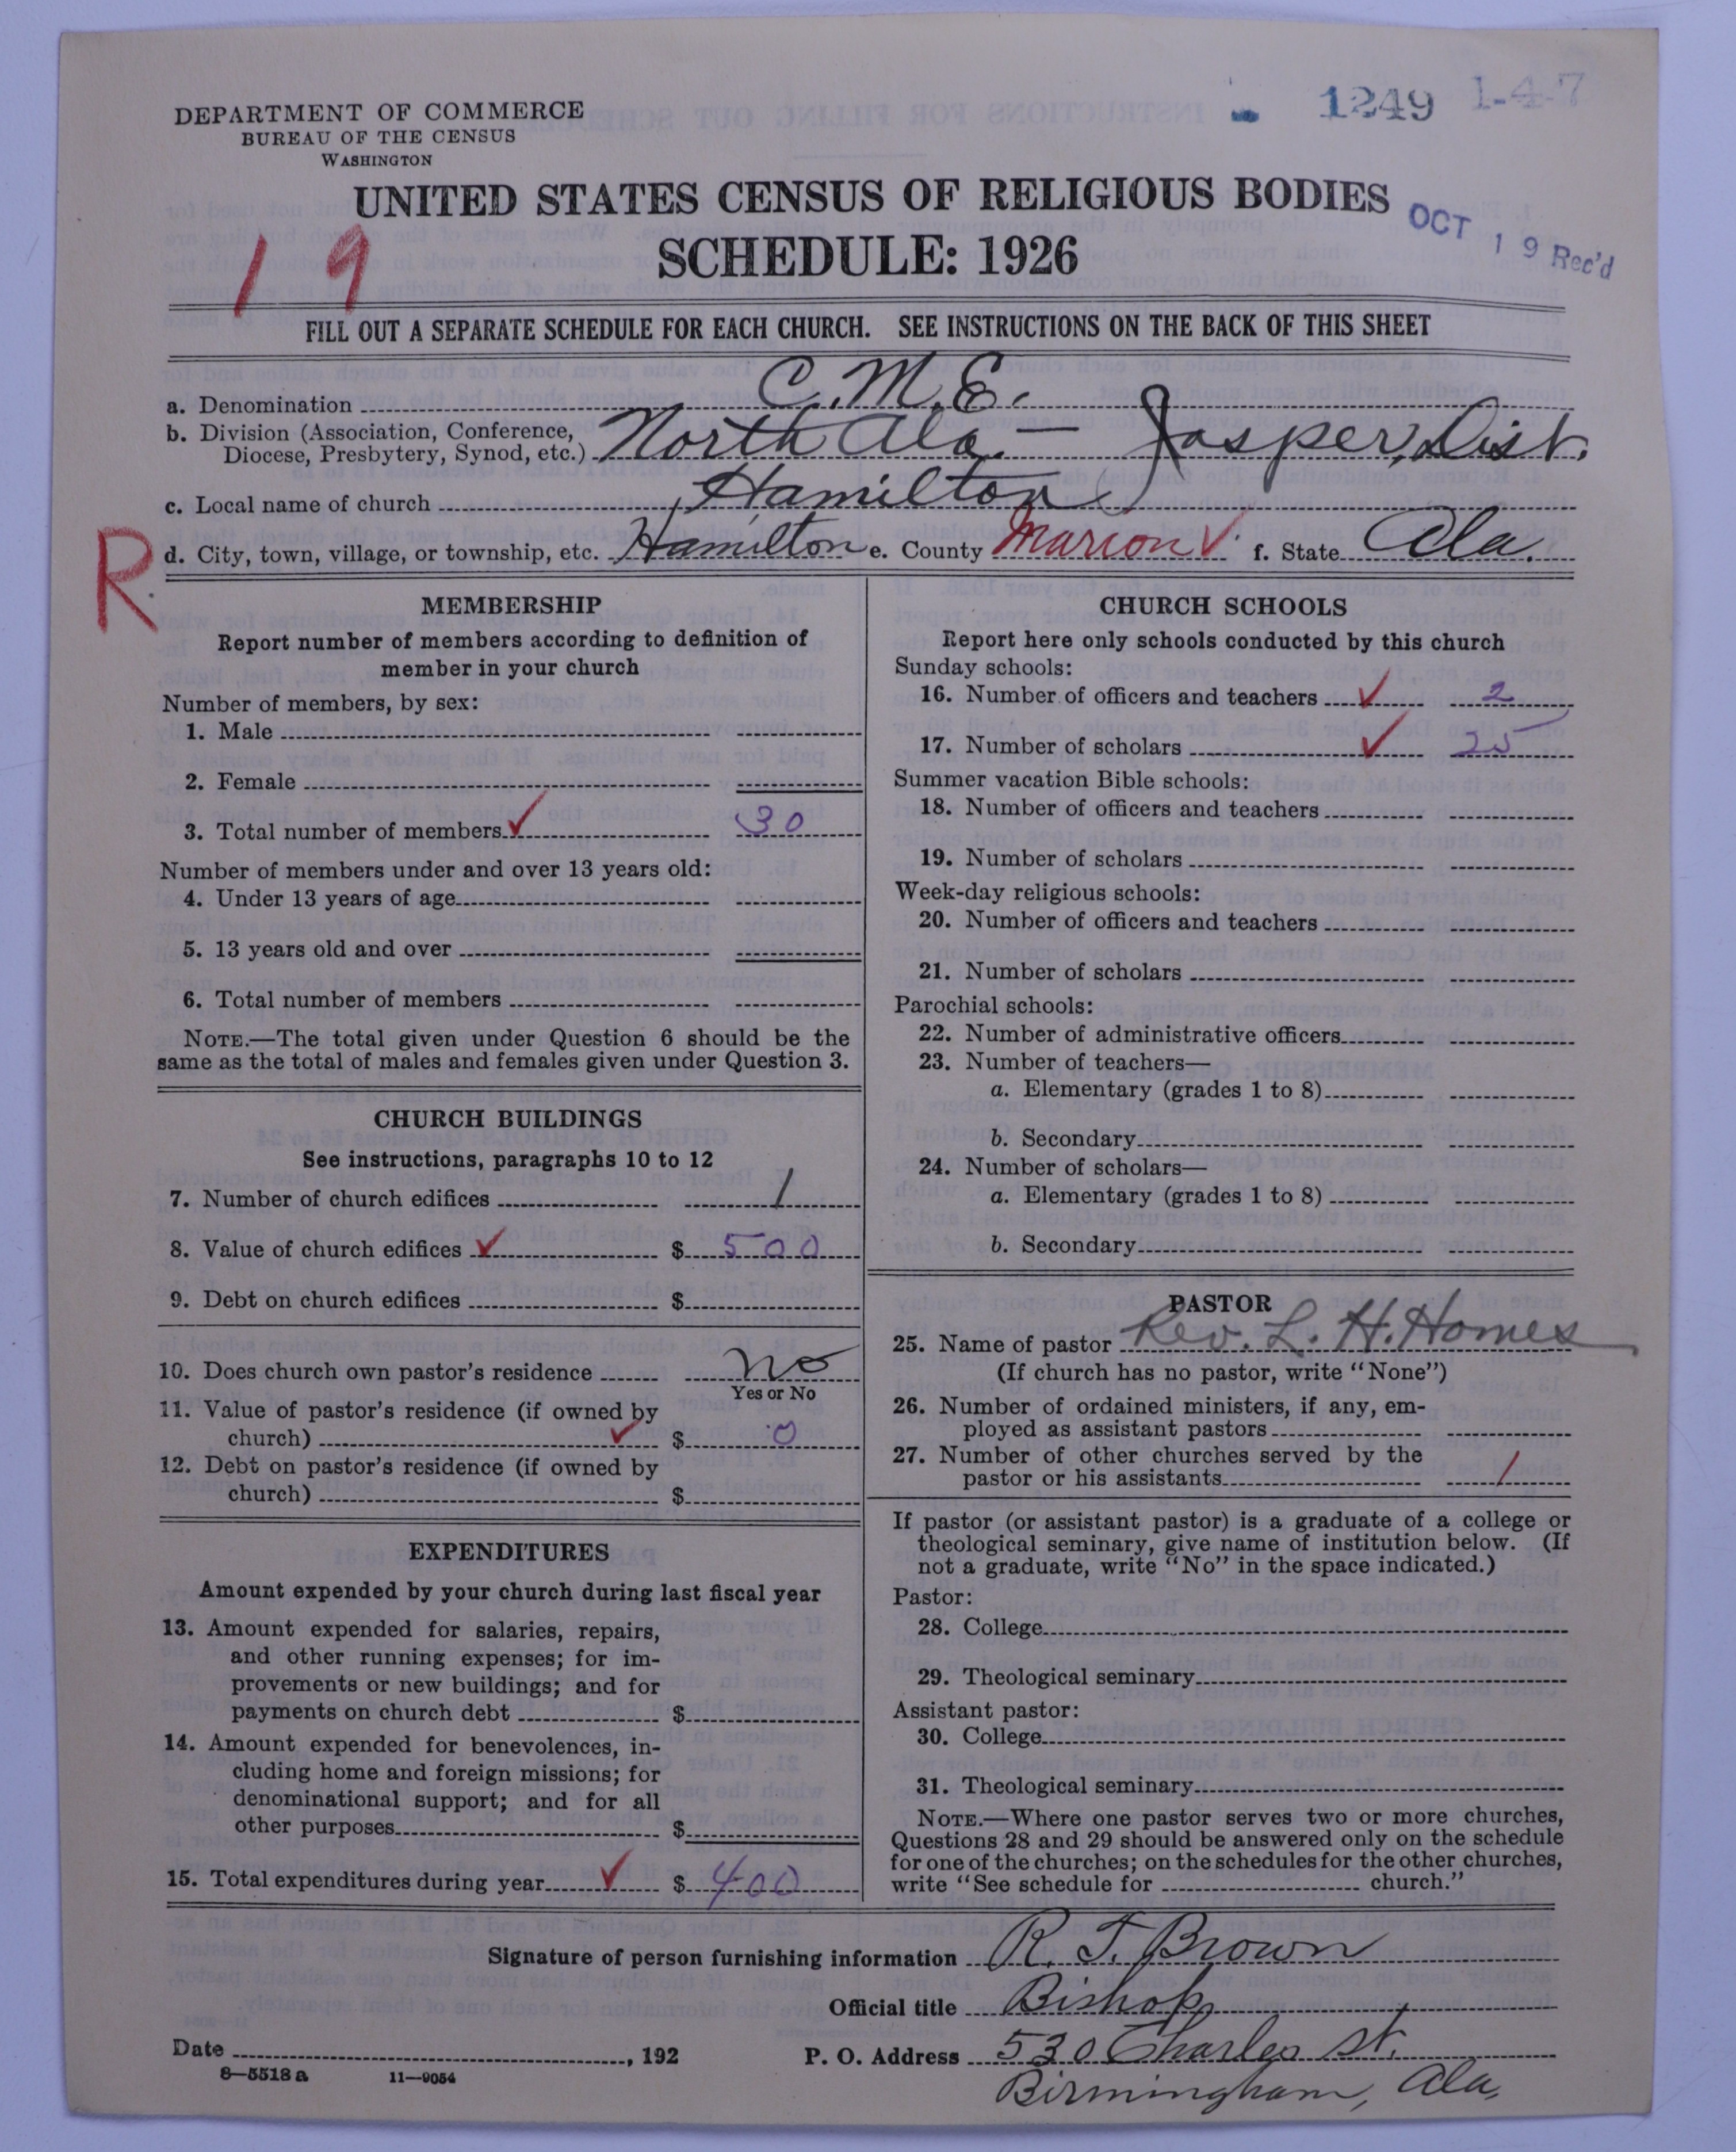 1249 1-4-7
DEPARTMENT OF COMMERCE
BUREAU OF THE CENSUS
WASHINGTON
UNITED STATES CENSUS OF RELIGIOUS BODIES
SCHEDULE: 1926
OCT 19 Rec'd
19
FILL OUT A SEPARATE SCHEDULE FOR EACH CHURCH. SEE INSTRUCTIONS ON THE BACK OF THIS SHEET
a. Denomination C.M.E.
b. Division (Association, Conference,
Diocese, Presbytery, Synod, etc.) North Ala — Jasper, Dist.
c. Local name of church Hamilton
R
d. City, town, village, or township, etc. Hamilton e. County Marion ✓ f. State Ala.
MEMBERSHIP
Report number of members according to definition of
member in your church
Number of members, by sex:
1. Male
2. Female
3. Total number of members ✓ 30
Number of members under and over 13 years old:
4. Under 13 years of age
5. 13 years old and over
6. Total number of members
NOTE.—The total given under Question 6 should be the
same as the total of males and females given under Question 3.
CHURCH BUILDINGS
See instructions, paragraphs 10 to 12
7. Number of church edifices 1
8. Value of church edifices ✓ $ 500
9. Debt on church edifices $
10. Does church own pastor's residence No
Yes or No
11. Value of pastor's residence (if owned by
church) ✓ $ 0
12. Debt on pastor's residence (if owned by
church) $
EXPENDITURES
Amount expended by your church during last fiscal year
13. Amount expended for salaries, repairs,
and other running expenses; for im-
provements or new buildings; and for
payments on church debt $
14. Amount expended for benevolences, in-
cluding home and foreign missions; for
denominational support; and for all
other purposes $
15. Total expenditures during year ✓ $ 400
CHURCH SCHOOLS
Report here only schools conducted by this church
Sunday schools:
16. Number of officers and teachers ✓ 2
17. Number of scholars ✓ 25
Summer vacation Bible schools:
18. Number of officers and teachers
19. Number of scholars
Week-day religious schools:
20. Number of officers and teachers
21. Number of scholars
Parochial schools:
22. Number of administrative officers
23. Number of teachers—
a. Elementary (grades 1 to 8)
b. Secondary
24. Number of scholars—
a. Elementary (grades 1 to 8)
b. Secondary
PASTOR
25. Name of pastor Rev. L. H. Homes
(If church has no pastor, write "None")
26. Number of ordained ministers, if any, em-
ployed as assistant pastors
27. Number of other churches served by the
pastor or his assistants 1
If pastor (or assistant pastor) is a graduate of a college or
theological seminary, give name of institution below. (If
not a graduate, write "No" in the space indicated.)
Pastor:
28. College
29. Theological seminary
Assistant pastor:
30. College
31. Theological seminary
NOTE.—Where one pastor serves two or more churches,
Questions 28 and 29 should be answered only on the schedule
for one of the churches; on the schedules for the other churches,
write "See schedule for church."
Signature of person furnishing information R. T. Brown
Official title Bishop
Date , 192 P. O. Address 530 Charles St.
8-5518a 11-9054 Birmingham, Ala.